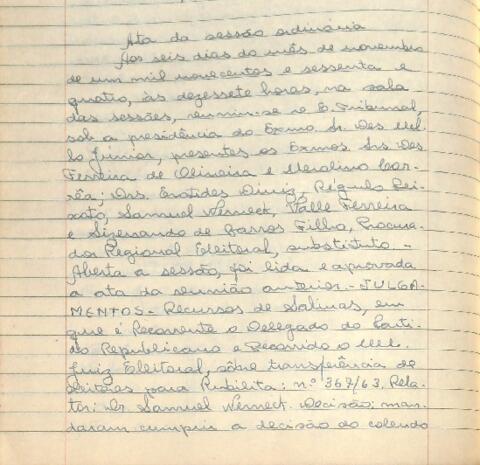 Ata da sessão ordinária
Aos seis dias do mês de novembro
de um mil novecentos e sessenta e
quatro, às dezessete horas, na sala
das sessões, reuniu-se o E. Tribunal,
sob a presidência do Exmo. Sr. Des. Mel-
lo Júnior, presentes os Exmos. Srs. Des.
Ferreira de Oliveira e Merolino Cor-
rêa; Drs. Erotides Diniz, Régulo Pei-
xoto, Samuel Werneck, Valle Ferreira
e Sizenando de Barros Filho, Procura-
dor Regional Eleitoral, substituto. -
Aberta a sessão, foi lida e aprovada
a ata da reunião anterior. - JULGA-
MENTOS - Recursos de Salinas, em
que é Recorrente o Delegado do Parti-
do Republicano e Recorrido o MM.
Juiz Eleitoral, sôbre transferência de
eleitores para Rubelita: nº 367/63, Rela-
tor: Dr. Samuel Werneck. Decisão: man-
daram cumprir a decisão do colendo